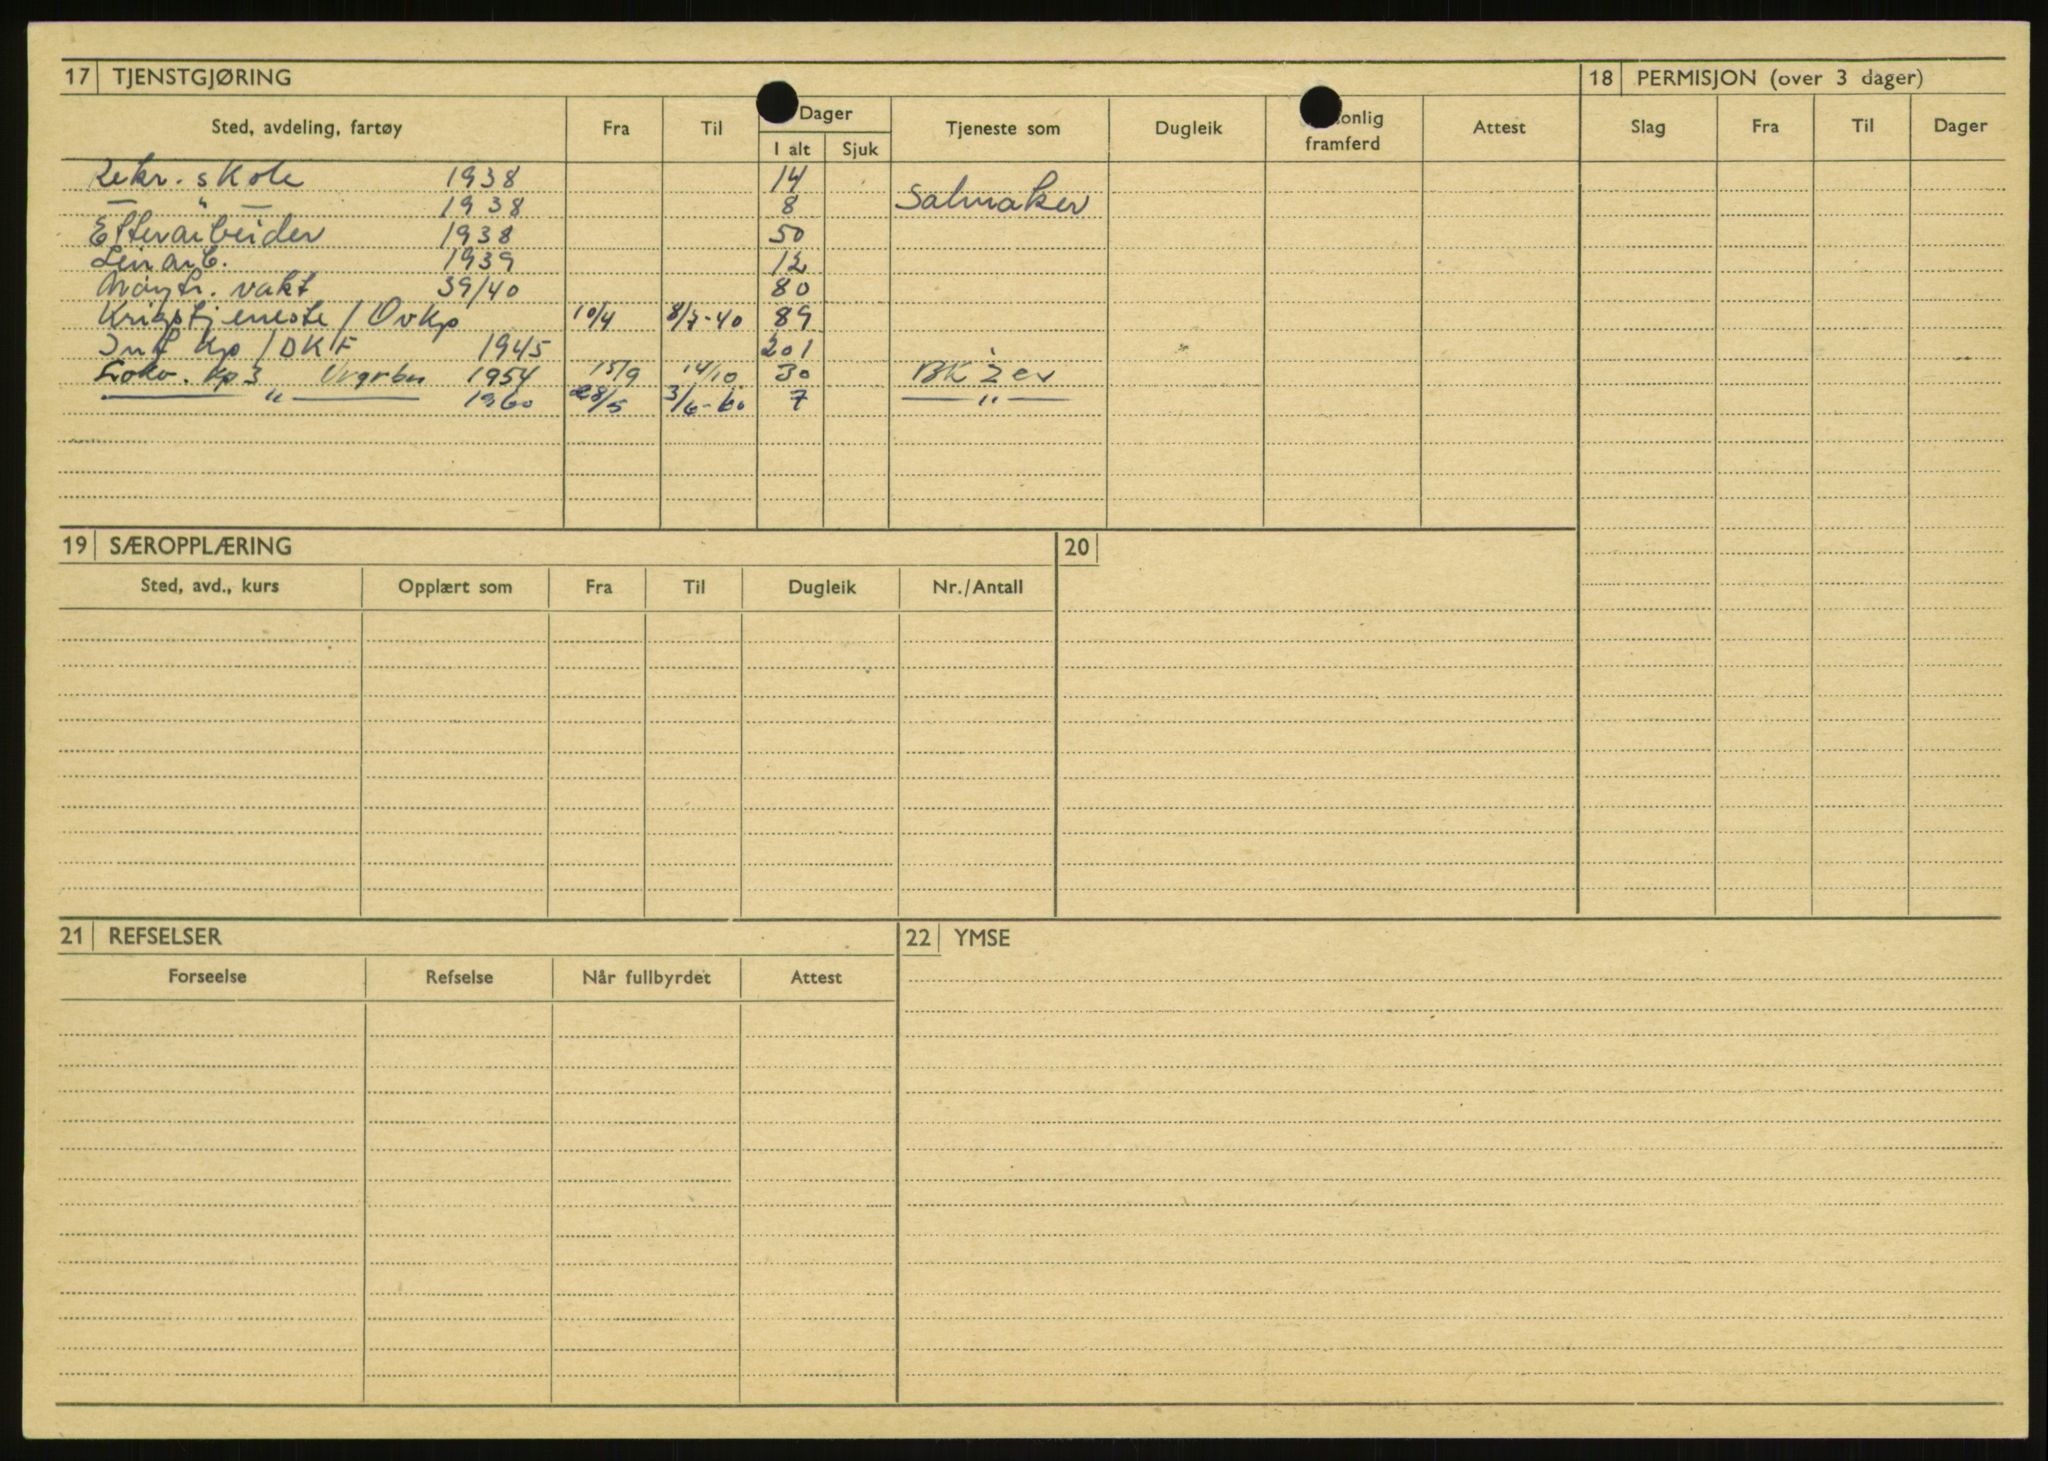 17 TJENSTGJØRING
18 PERMISJON (over 3 dager)
Sted, avdeling, fartøy Fra Til Dager Tjeneste som Dugleik onlig framferd Attest Slag Fra Til Dager
I alt Sjuk
Rekr. skole 1938 14
— " — 1938 8 Salmaker
Etterarbeider 1938 50
Leirarb. 1939 12
Nøytr. vakt 39/40 80
Krigstjeneste / Ov Kp 10/4 8/7-40 89
Inf Kp / DKF 1945 201
Lokv. Kp 3 1954 15/9 14/10 30 BK
— " — 1960 28/5 3/6-60 7 — " —
19 SÆROPPLÆRING
20
Sted, avd., kurs Opplært som Fra Til Dugleik Nr./Antall
21 REFSELSER
22 YMSE
Forseelse Refselse Når fullbyrdet Attest